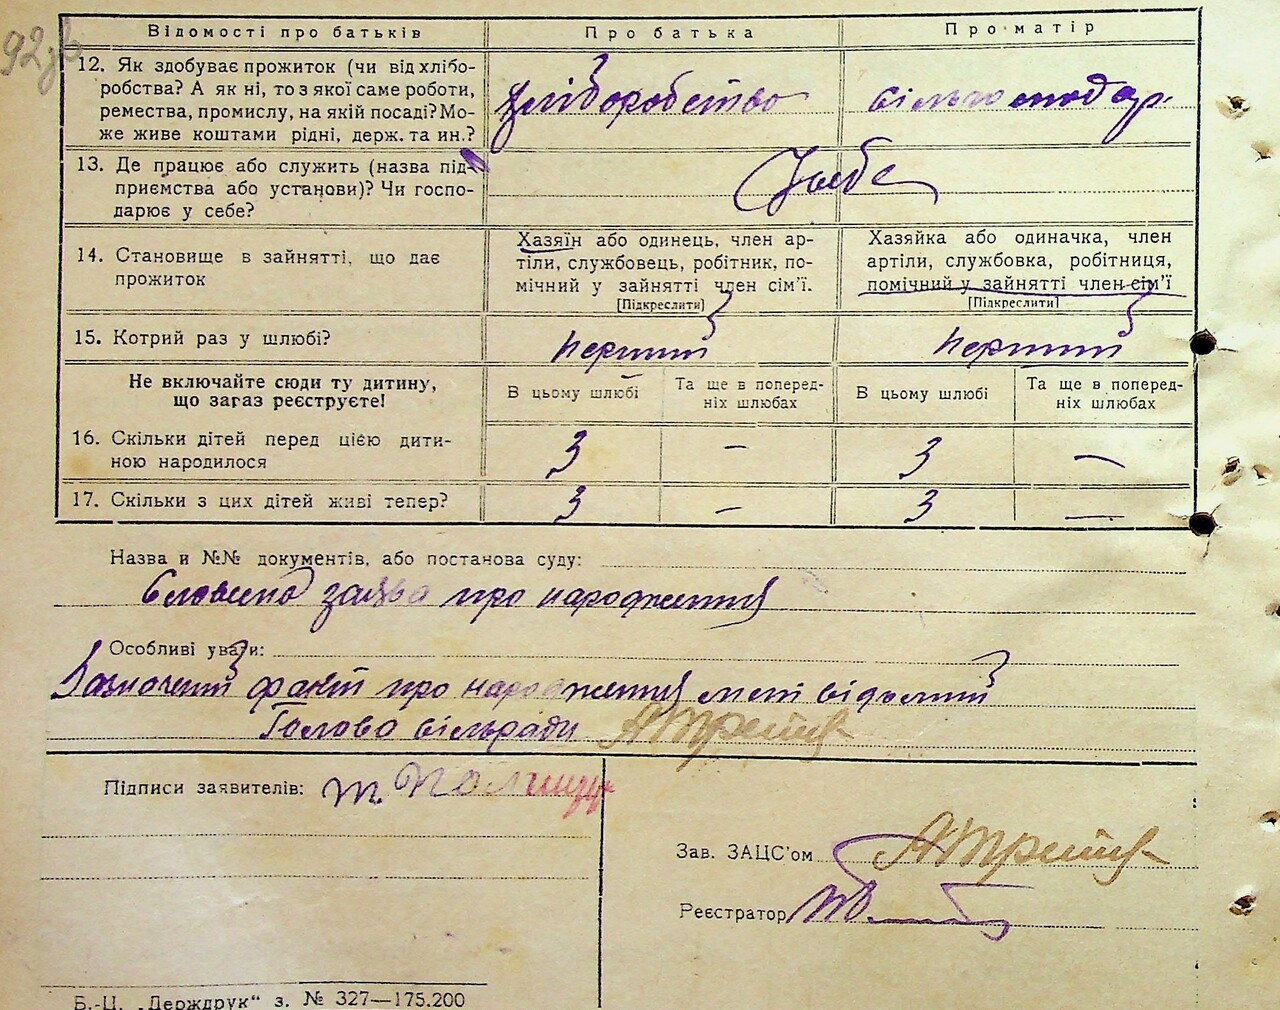 92зв
Відомості про батьків
Про батька
Про матір
12. Як здобуває прожиток (чи від хлібо-
робства? А як ні, то з якої саме роботи,
ремества, промислу, на якій посаді? Мо-
же живе коштами рідні, держ. та ин.?
хліборобство
сільгосподар.
13. Де працює або служить (назва під-
приємства або установи)? Чи госпо-
дарює у себе?
У себе
14. Становище в зайнятті, що дає
прожиток
Хазяїн або одинець, член ар-
тіли, службовець, робітник, по-
мічний у зайнятті член сім'ї.
[Підкреслити]
Хазяйка або одиначка, член
артіли, службовка, робітниця,
помічний у зайнятті член сім'ї
[Підкреслити]
15. Котрий раз у шлюбі?
перший
перший
Не включайте сюди ту дитину,
що загаз реєструєте!
В цьому шлюбі
Та ще в поперед-
ніх шлюбах
В цьому шлюбі
Та ще в поперед-
ніх шлюбах
16. Скільки дітей перед цією дити-
ною народилося
3 – 3 –
17. Скільки з цих дітей живі тепер?
3 – 3 –
Назва и №№ документів, або постанова суду:
Словесна заява про народження
Особливі уваги:
Зазначений факт про народження мені відомий
Голова сільради
Підписи заявителів:
Зав. ЗАЦС'ом
Реєстратор
Б.-Ц. „Держдрук“ з. № 327—175.200